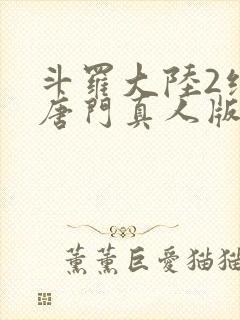 斗羅大陸2
唐門真人版
薰薰巨愛猫猫